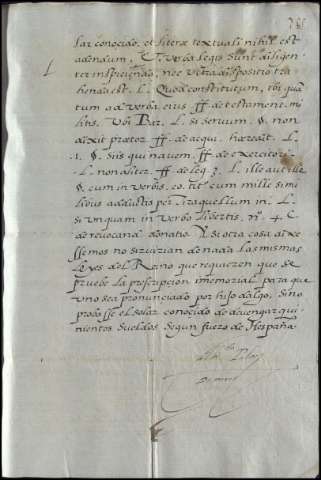 lar conocido, et literæ textuali nihil est
addendum, Ut verba legis sunt diligen
ter inspicienda, nec ultra dispositio tra
henda est. L. Quod constitutum, ubi qua
tum ad verba eius ff de testament. mi
litis. Ubi Bar. L. si servum §. non
dixit prætor ff. de acqui. hæredit. L.
1. §. si is qui navem ff de exercitori
L. non aliter ff de leg 3. L. ille aut ille
§. cum in verbis. eo. tit cum mille simi
libus adductis per Tiraquellum in L.
si unquam in verbo libertis. nº 4. C
de revocand. donatio. Y si otra cosa dixe
ssemos no servirian de nada las mismas
Leyes del Reino que requieren que se
pruebe la prescripcion immemorial para que
uno sea pronunciado por hijo dalgo, si no
probasse el solar conocido de devengar qui
nientos sueldos segun fuero de Hespaña